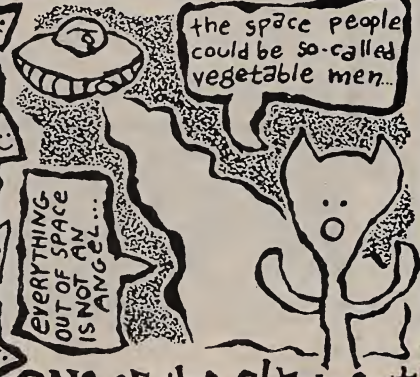 the space people
could be so-called
vegetable men...
EVERYTHING
OUT OF SPACE
IS NOT AN
ANGEL...